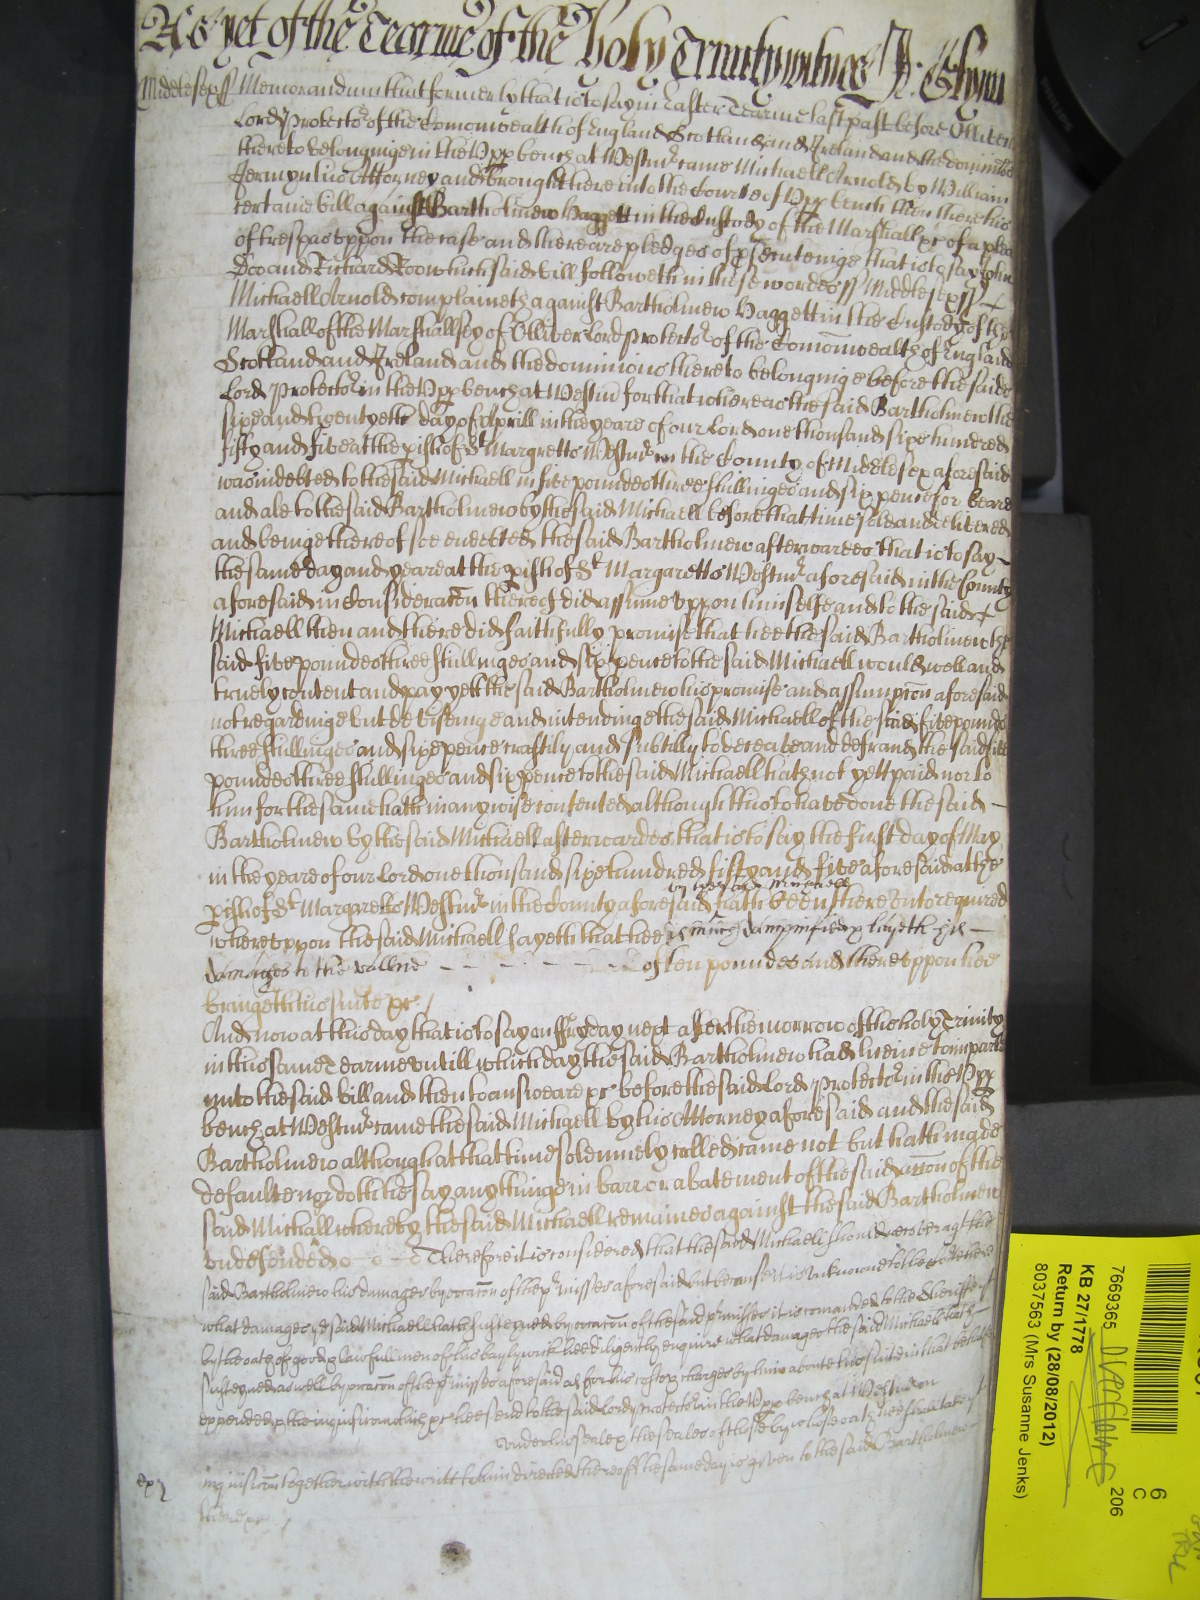 As yet of the Tearme of the holy Trinity witnes J. Glynn
Middlesex ss Memorandum that formerly that is to say in Easter Tearme last past before Oliver
Lord Protector of the Comonwealth of England Scotland and Ireland and the dominions
thereto belonginge in the Upp bench at Westmr came Michaell Arnold by William
Jermyn his Attorney and brought here into the Court of Upp bench then there his
certaine bill against Bartholmew Haggett in the Custody of the Marshall &c of a plea
of trespas uppon the case and there are pledges of psecuteinge that is to say John
Doo and Richard Roo which said bill followeth in these wordes ss Middlesex ss
Michaell Arnold complaineth against Bartholmew Haggett in the Custody of the
Marshall of the Marshallsey of Olliver Lord Protector of the Comonwealth of England
Scotland and Ireland and the dominions thereto belonginge before the said
Lord Protector in the Upp bench at Westmr for that whereas the said Bartholmew the
sixe and twentyeth day of Aprill in the yeare of our Lord one thousand sixe hundred
fifty and five at the pish of St Margretts Westmr in the County of Middlesex aforesaid
was indebted to the said Michaell in five poundes three shillinges and six pence for beare
and ale to the said Bartholmew by the said Michaell before that time sold and delivered
and beinge thereof soe endebted the said Bartholmew afterwardes that is to say
the same day and yeare at the pish of St Margaretts Westmr aforesaid in the County
aforesaid in Consideracon thereof did assume uppon himselfe and to the said
Michaell then and there did faithfully promise that hee the said Bartholmew the
said five poundes three shillinges and six pence to the said Michaell would well and
truely content and pay yett the said Bartholmew his promise and assumpcon aforesaid
not regardinge but deviseinge and intendinge the said Michaell of the said five poundes
three shillinges and sixe pence craftily and subtilly to deceave and defraud the said five
poundes three shillinges and six pence to the said Michaell hath not yett paid nor to
him for the same hath in any wise contented although thus to have done the said
Bartholmew by the said Michaell afterwardes that is to say the first day of May
in the yeare of our Lord one thousand sixe hundred fifty and five aforesaid at the
by the said Michaell
pish of St Margaretts Westmr in the County aforesaid hath been thereunto required
whereuppon the said Michaell sayeth that hee is much dampnified & layeth his
damages to the vallue of ten poundes and thereuppon hee
bringeth his suite &c
And now at this day that is to say on ffryday next after the morrow of the holy Trinity
in this same Tearme untill which day the said Bartholmew had licence to imparle
unto the said bill and then to answeare &c before the said Lord Protector in the Upp
bench at Westmr came the said Michaell by his Attorney aforesaid and the said
Bartholmew although at that time solemnely called came not but hath made
defaulte nor doth hee say any thinge in barr or abatement of the said accon of the
said Michaell whereby the said Michaell remaines against the said Bartholmew
undefended Therefore it is considered that the said Michaell should recover agt the
said Bartholmew his damages by occacon of the pmisses aforesaid but because it is unknowne to the Court here
what damages the said Michaell hath susteyned by occacon of the said pmisses it is comanded to the Sheriffe
by the oath of good & lawfull men of his baylywick hee diligently enquire what damages the said Michaell hath
susteyned as well by occacon of the pmisses aforesaid as for his costes & charges by him about his suite in that behalfe
expended & the inquisicon which &c hee send to the said Lord Protector in the Upp bench at Westmr on
under his seale & the seales of those by whose oath hee shall take
exr
inquisicon together with the writt to him directed thereof the same day is given to the said Bartholmew
there &c
PHILIPS
7669365
206
6
C
KB 27/1778
Return by (28/08/2012)
8037563 (Mrs Susanne Jenks)